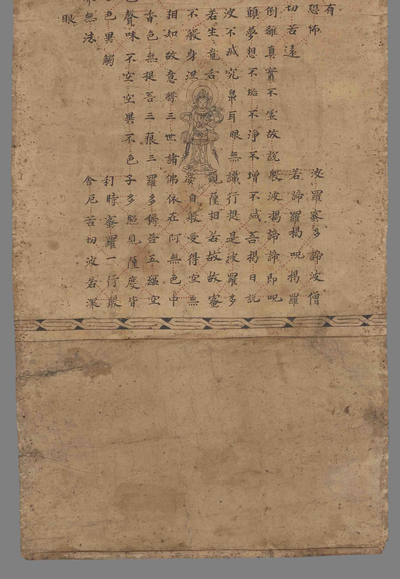 有
恐怖
波羅蜜多諦波僧
切苦遠
若諦羅揭呪揭羅
倒離真實不虛故說般波揭諦諦即呪
顛夢想不垢不淨不增不減菩揭曰說
不減究鼻耳眼無識行提是波羅多
若生竟舌
薩相若故故蜜
不般身涅
自般受得空無
相如故意三世諸佛依在阿無色中
香色無提菩三藐三羅多五蘊空
色聲味不空空異不色子多照見薩度皆
色異觸
行時羅一行般
無法
舍厄苦切波若深
眼